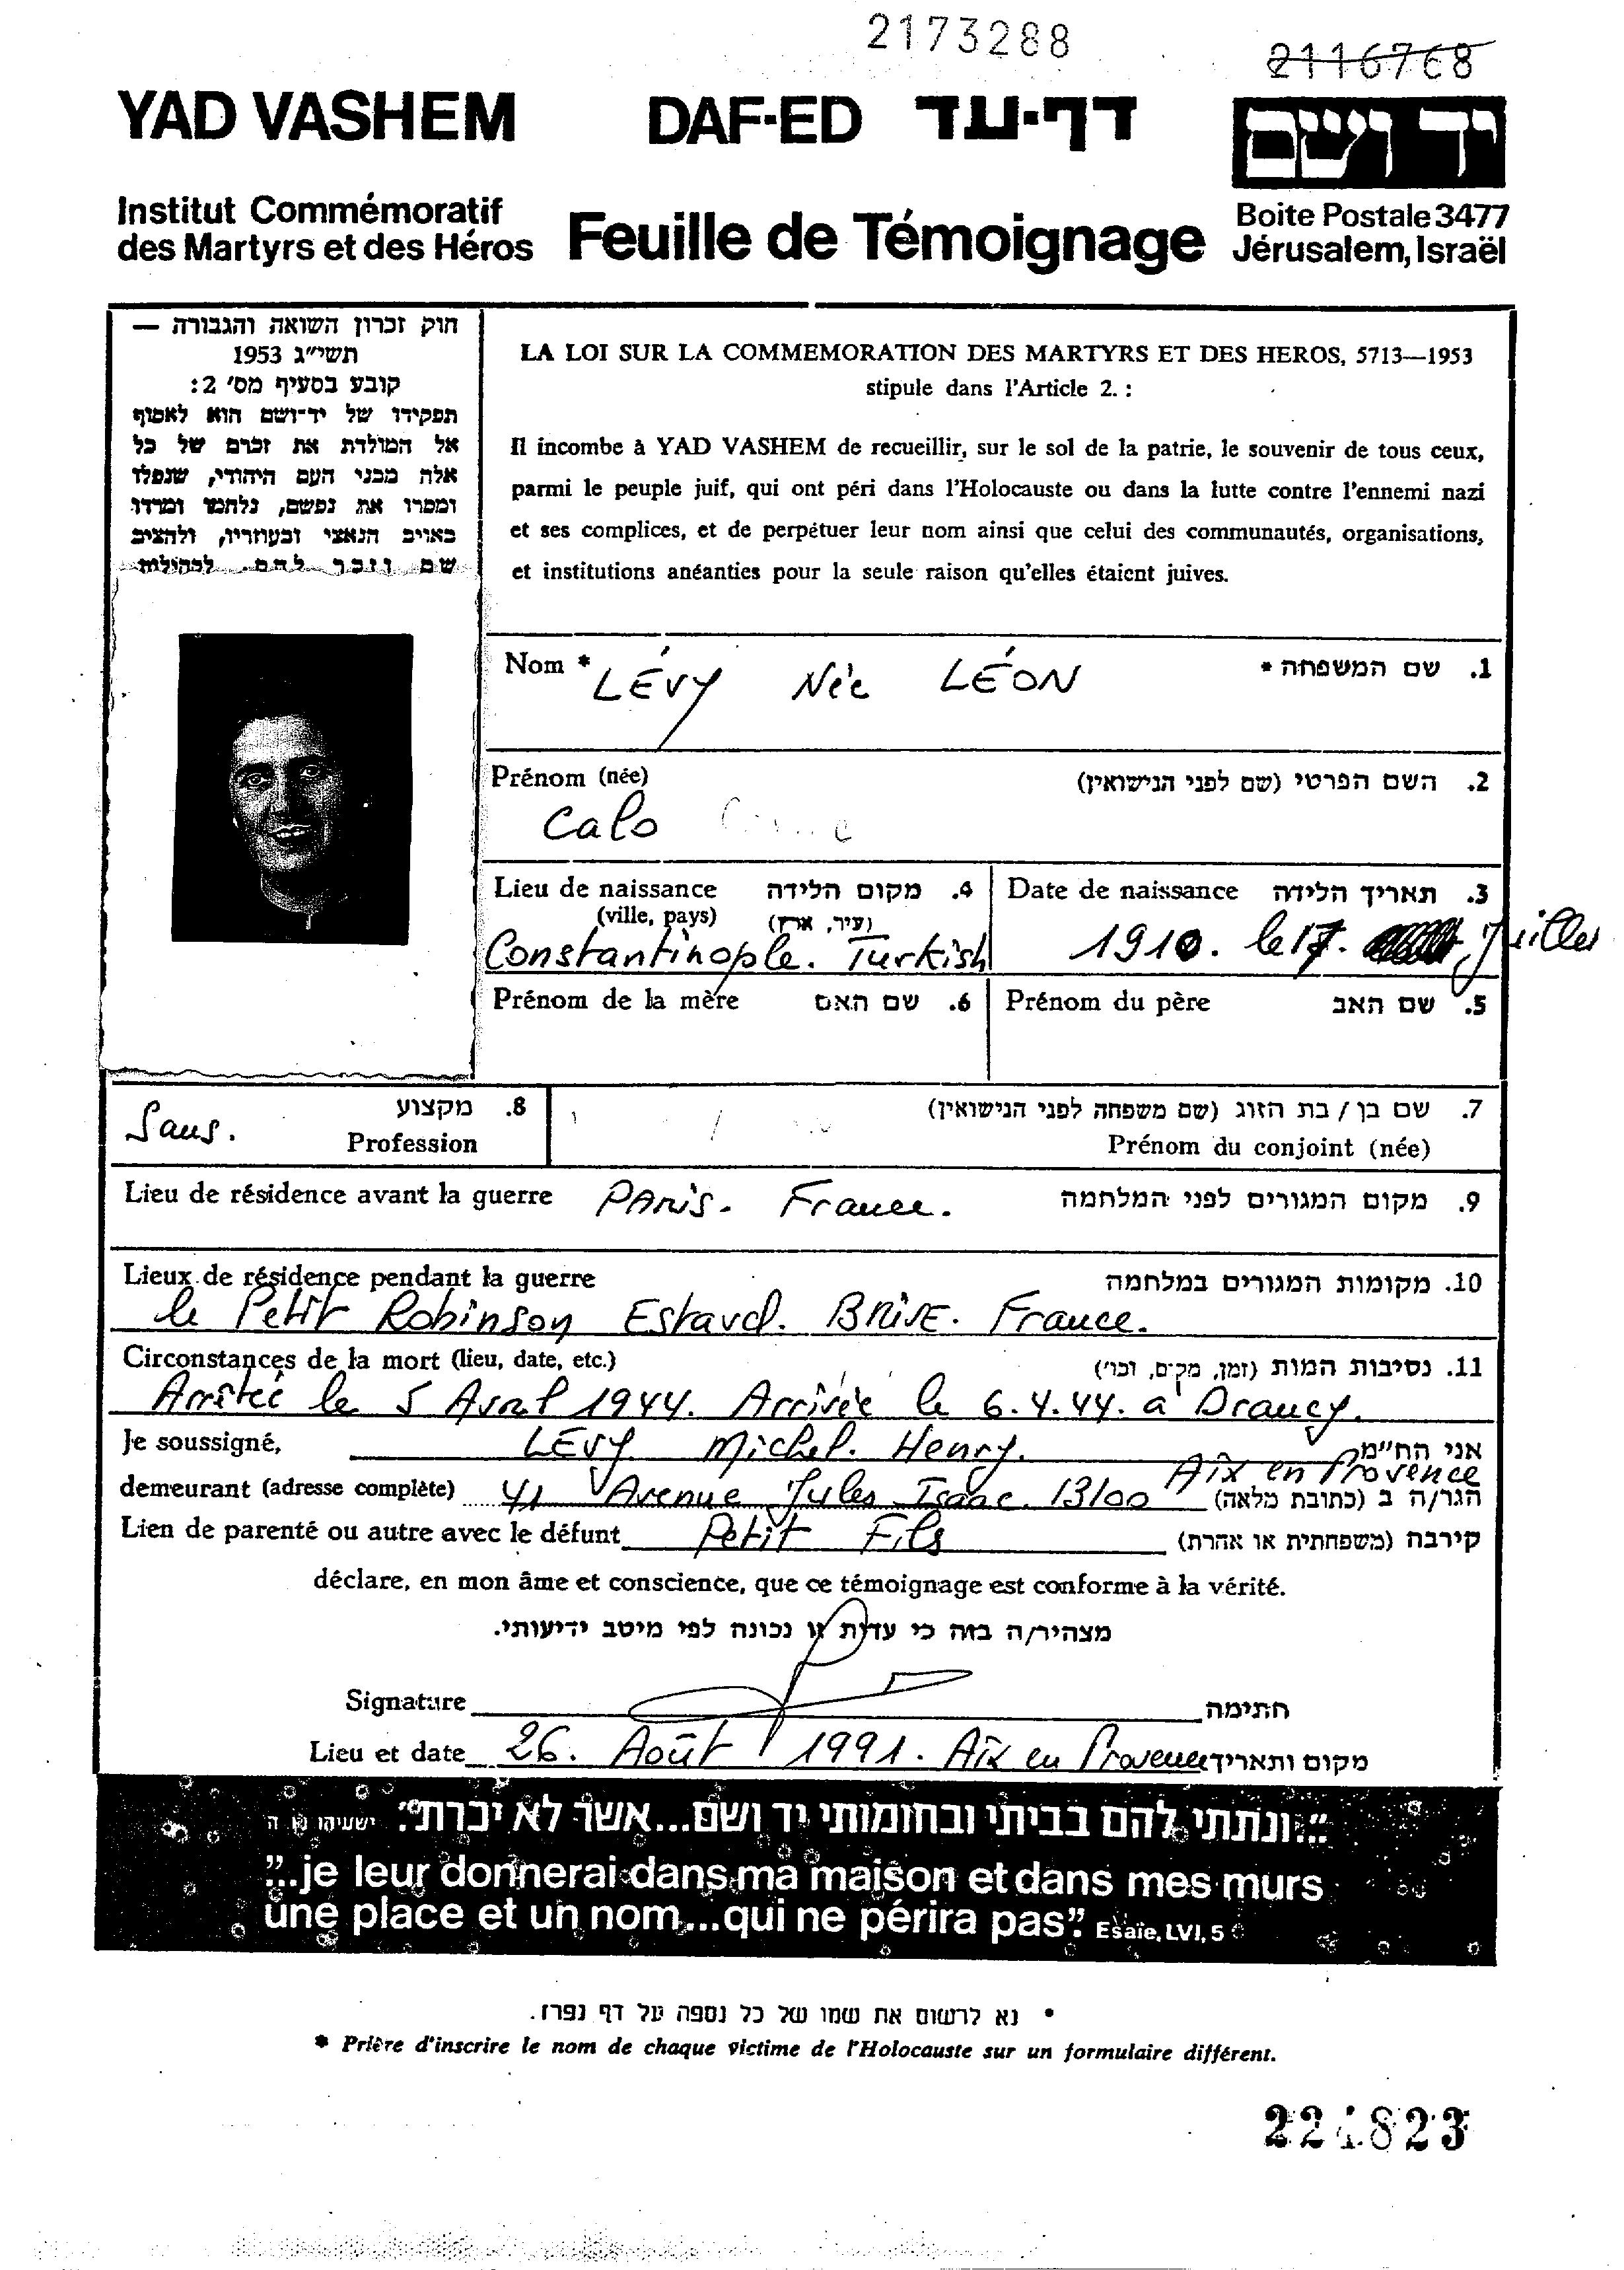 2173288
2116768
YAD VASHEM DAF-ED דף-עד יד ושם
Institut Commémoratif
des Martyrs et des Héros
Feuille de Témoignage
Boite Postale 3477
Jérusalem, Israël
חוק זכרון השואה והגבורה —
תשי״ג 1953
קובע בסעיף מס׳ 2:
תפקידו של יד-ושם הוא לאסוף
אל המולדת את זכרם של כל
אלה מבני העם היהודי, שנפלו
ומסרו את נפשם, נלחמו ומרדו
באויב הנאצי ובעוזריו, ולהציב
שם וזכר להם, לקהילות
LA LOI SUR LA COMMEMORATION DES MARTYRS ET DES HEROS, 5713—1953
stipule dans l'Article 2. :
Il incombe à YAD VASHEM de recueillir, sur le sol de la patrie, le souvenir de tous ceux,
parmi le peuple juif, qui ont péri dans l'Holocauste ou dans la lutte contre l'ennemi nazi
et ses complices, et de perpétuer leur nom ainsi que celui des communautés, organisations,
et institutions anéanties pour la seule raison qu'elles étaient juives.
Nom * LÉVY Née LÉON 1. שם המשפחה *
Prénom (née) 2. השם הפרטי (שם לפני הנישואין)
Calo
Lieu de naissance 4. מקום הלידה
(ville, pays) (עיר, ארץ)
Constantinople. Turkish
Date de naissance 3. תאריך הלידה
1910. le 17. Juillet
Prénom de la mère 6. שם האם
Prénom du père 5. שם האב
Sans. 8. מקצוע
Profession
7. שם בן / בת הזוג (שם משפחה לפני הנישואין)
Prénom du conjoint (née)
Lieu de résidence avant la guerre PARIS. France. 9. מקום המגורים לפני המלחמה
Lieux de résidence pendant la guerre 10. מקומות המגורים במלחמה
le Petit Robinson Estavel. BRIVE. France.
Circonstances de la mort (lieu, date, etc.) 11. נסיבות המות (זמן, מקום, וכו׳)
Arrêtée le 5 Avril 1944. Arrivée le 6.4.44. à Drancy.
Je soussigné, LEVY Michel. Henry. אני הח״מ
demeurant (adresse complète) 41 Avenue Jules Isaac. 13100 Aix en Provence הגר/ה ב (כתובת מלאה)
Lien de parenté ou autre avec le défunt Petit Fils קירבה (משפחתית או אחרת)
déclare, en mon âme et conscience, que ce témoignage est conforme à la vérité.
מצהיר/ה בזה כי עדות זו נכונה לפי מיטב ידיעותי.
Signature חתימה
Lieu et date 26. Août 1991. Aix en Provence מקום ותאריך
״...ונתתי להם בביתי ובחומותי יד ושם...אשר לא יכרת״. ישעיהו נו ה
"...je leur donnerai dans ma maison et dans mes murs
une place et un nom...qui ne périra pas". Esaïe, LVI, 5
* נא לרשום את שמו של כל נספה על דף נפרד.
* Prière d'inscrire le nom de chaque victime de l'Holocauste sur un formulaire différent.
224823